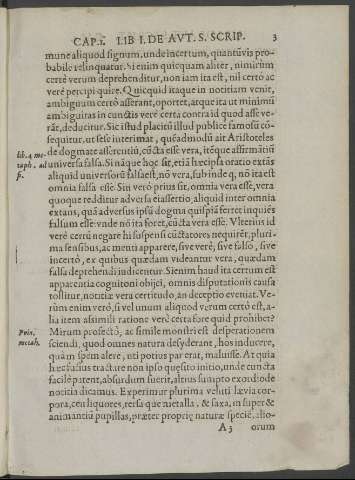 CAP.1. LIB I. DE AVT. S. SCRIP. 3
mune aliquod signum. unde incertum, quantũvis pro-
babile relinquatur. Si enim quicquam aliter, nimirũm
certè verum deprehenditur, non iam ita est, nil certò ac
verè percipi quire. Quicquid itaque in notitiam venit,
ambiguum certò asserant, oportet, atque ita ut minimũ
ambiguitas in cunctis verè certa contra id quod asse ve-
rãt, deducitur. Sic istud placitũ illud publicè famosũ cõ-
sequitur, ut sese interimat, quẽadmodũ ait Aristoteles
lib. 4 me-
taph. ad
fi.
de dogmate assertentiũ, cũcta esse vera, itẽque affirmãtiũ
universa falsa. Si nãque hoc sit, etiã hæc ipsa oratio extãs
aliquid universorũ falsa est, nõ vera, sub inde q, nõ ita est
omnia falsa esse. Sin verò prius sit, omnia vera esse, vera
quoque redditur adversa ei assertio, aliquid inter omnia
extans, quã adversus ipsũ dogma quispiã ferret inquiẽs
falsum esse: vnde nõ ita foret, cũcta vera esse. Vlterius id
verè certũ negare hi suspensi cũctatores nequirẽt, pluri-
ma sensibus, ac menti apparere, sive verè, sive falsò, sive
incertò, ex quibus quædam videantur vera, quædam
falsa deprehendi iudicentur. Sienim haud ita certum est
apparentia cognitioni obijci, omnis disputationis causa
tollitur, notitiæ vera certitudo, an deceptio eveniat. Ve-
rùm enim verò, si vel unum aliquod verum certò est, a-
lia item assimili ratione verè certa fore quid prohibet?
Prin.
metah.
Mirum profectò, ac simile monstri est desperationem
sciendi, quod omnes natura desyderant, hos inducere,
quàm spem alere, uti potius par erat, maluisse. At quia
hæc fusius tractare non ipso quesito initio, unde cuncta
facilè patent, absurdum fuerit, altius sumpto exordio de
notitia dicamus. Experimur plurima veluti lævia cor-
pora, ceu liquores, tersa que metalla, & saxa, in super &
animantiũ pupillas, præter propriæ naturæ speciẽ, alio-
A 3 orum